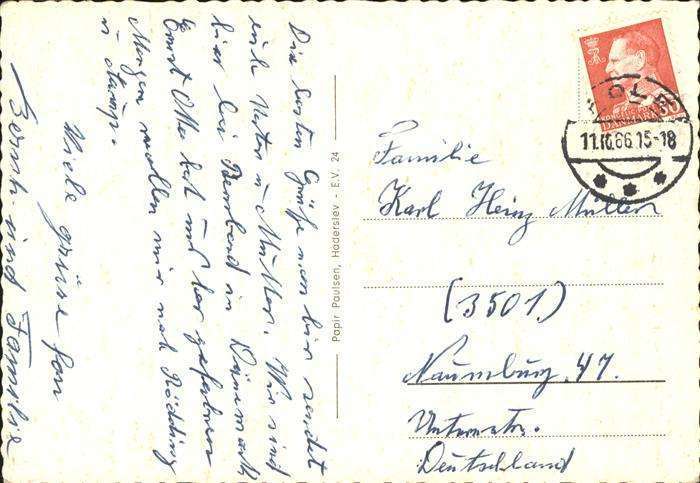 Die besten Grüße von hir sendet
eich Vater u Mutter. Wir sind
hier bei Bernhard in Dänemark
Ernst Otto hat uns her gefahren
Morgen wollen wir nach Rödding
u
Viele grüße fon
Bernh. und Familie
Papir Paulsen, Haderslev - E.V. 24
DANMARK
11.10.66.15-18
Familie
Karl Heinz Müller
(3501)
Naumburg 47.
Unterstr.
Deutschland